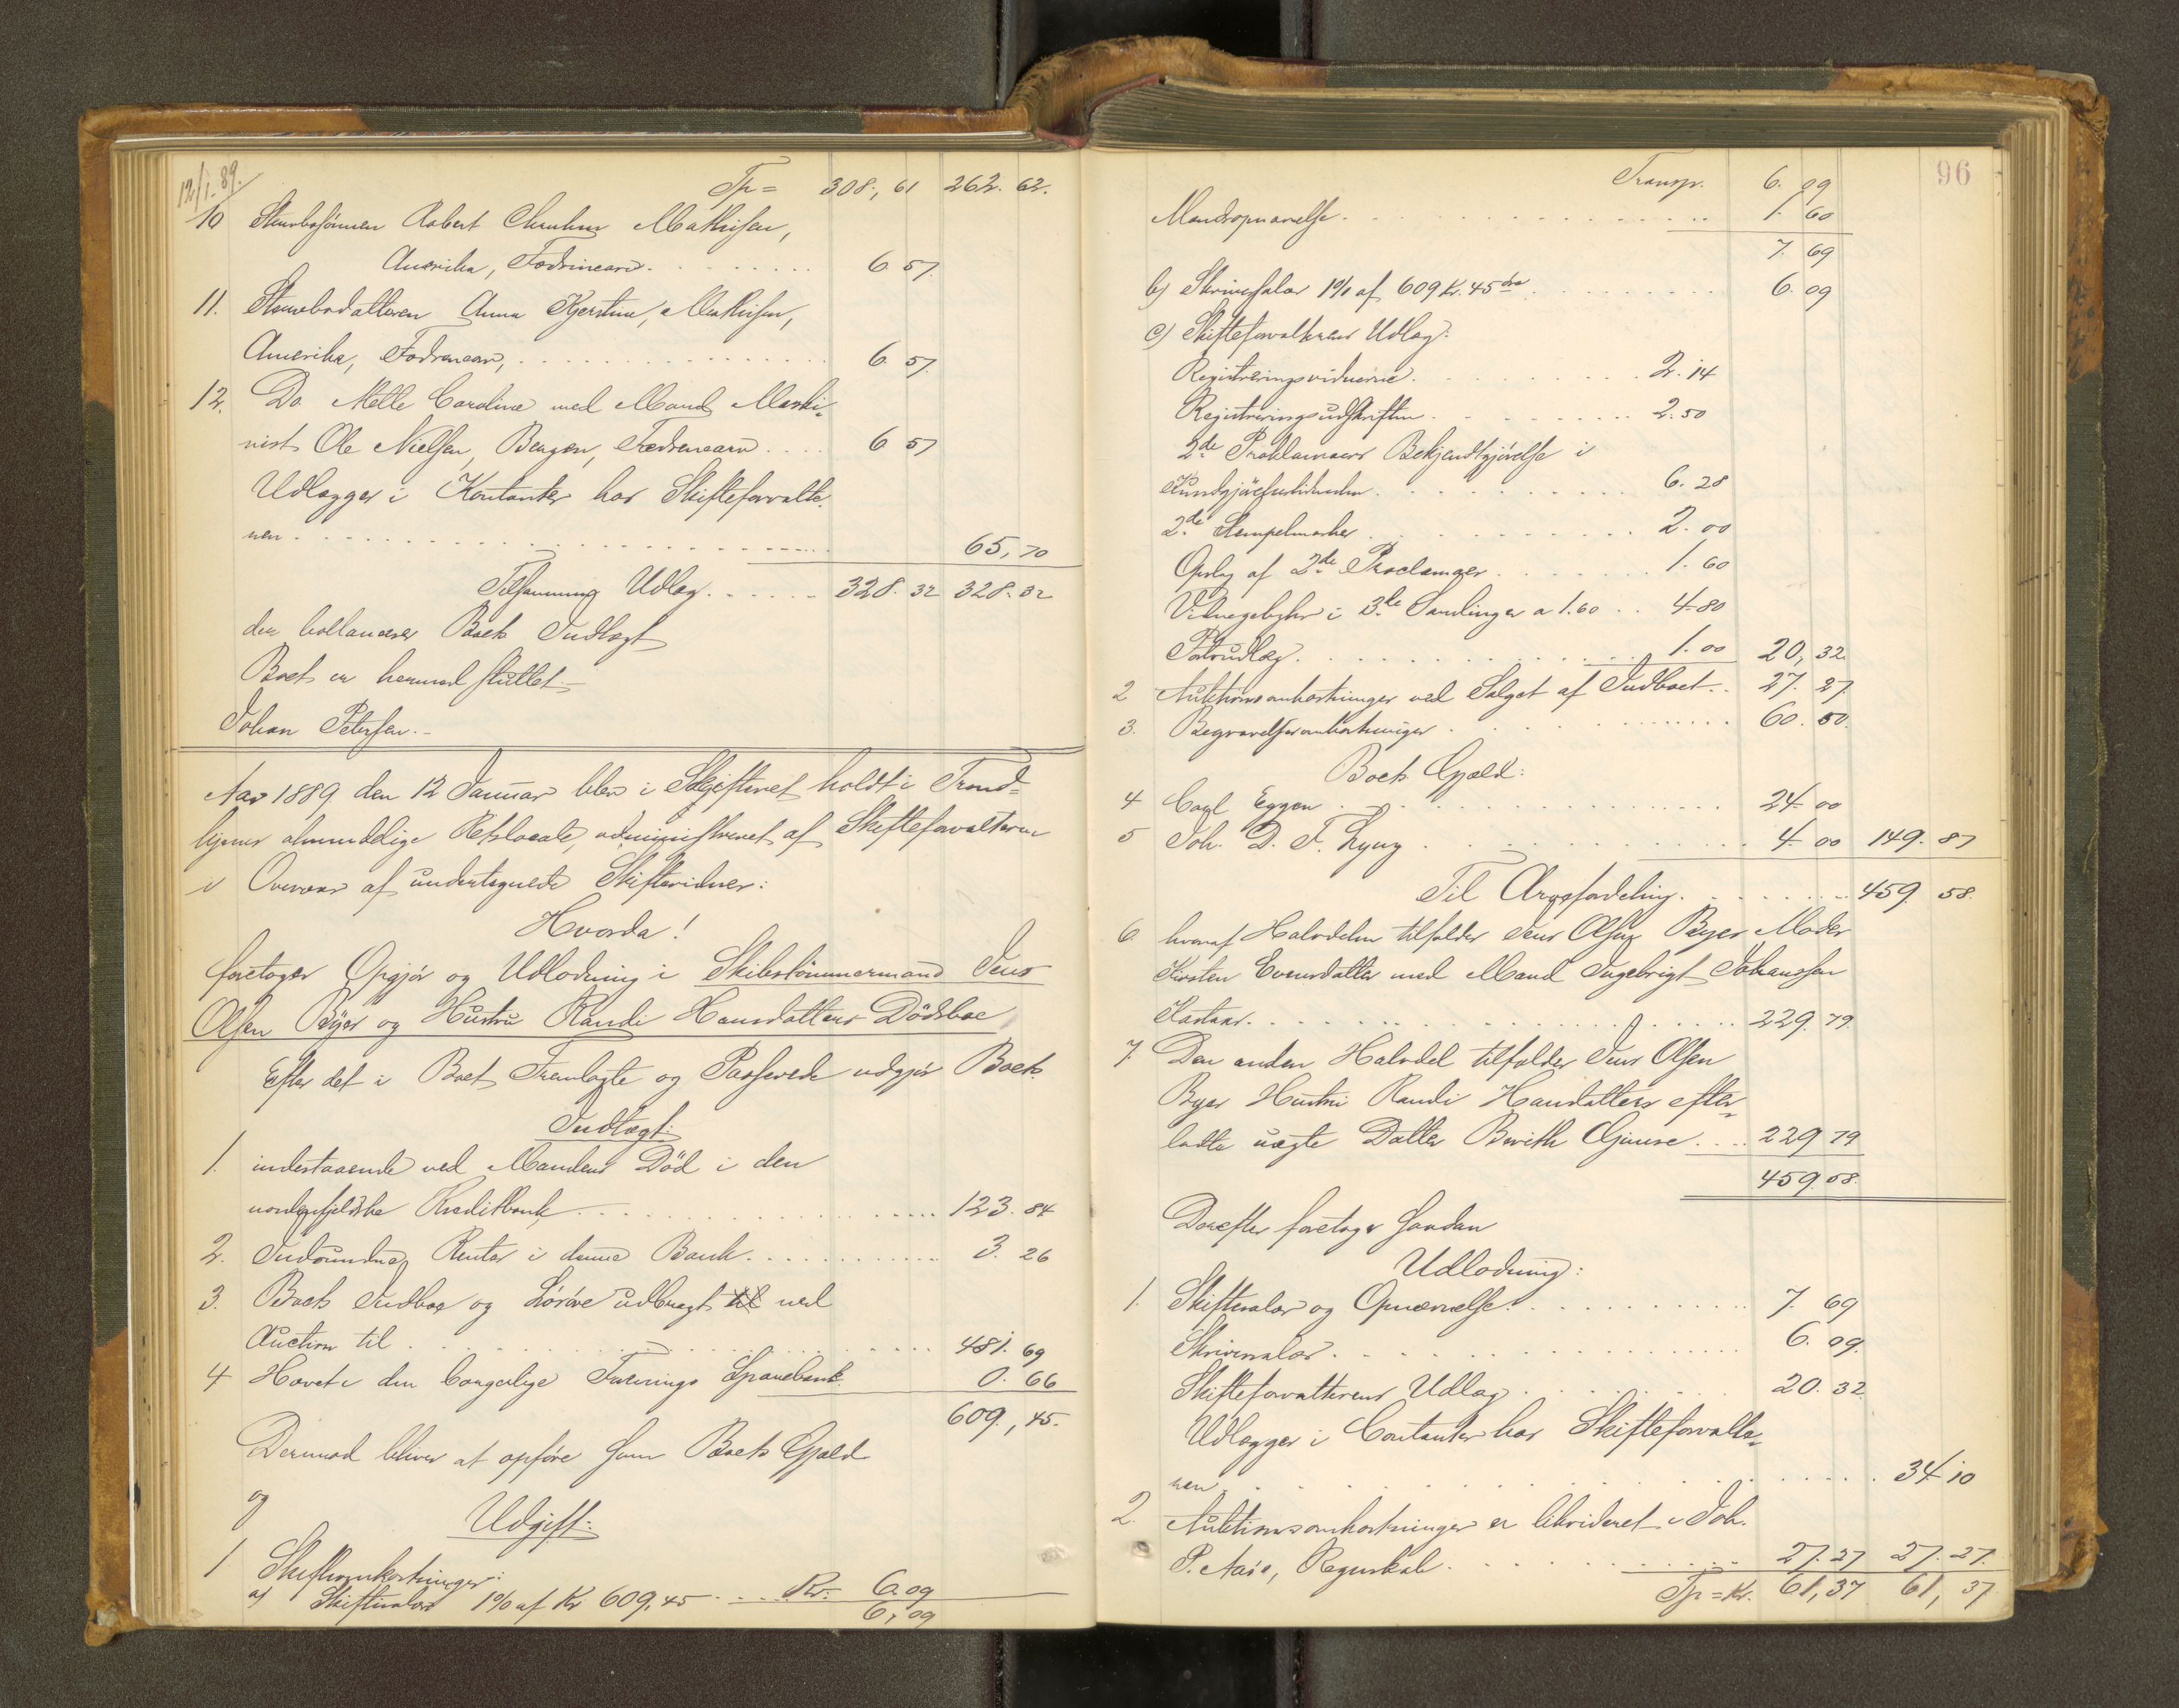 12/1. 89.
Tp = 308,, 61 262. 62.
10 Stervbosönnen Robert Mathisen,
Amerika, Fædrenearv. 6 57.
11. Stervbodatteren Anna Kjerstine, Mathisen,
Amerika, Fædrenearv, 6. 57.
12. Do. Mette Caroline med Mand Maski-
nist Ole Nielsen, Bergen, Fædrenearv 6 57
Udlægger i Kontanter har Skifteforvalte-
ren 65,70
Tilsammen Udlæg. 328. 32 328. 32
der ballancerer Boets Indtægt
Boet er hermed sluttet.-
Johan Petersen.-
Aar 1889 den 12 Januar blev i Skifteret holdt i Trond-
hjems almindelige Retslocale, administreret af Skifteforvalteren
i Overvær af undertegnede Skiftevidner:
Hvorda!
foretoges Opgjör og Udlodning i Skibstömmermand Jens
Olsen Byes og Hustru Randi Hansdatters Dödsboe
Efter det i Boet Fremlagte og Passerede udgjör Boets
Indtægt:
1. indestaaende ved Mandens Död i den
nordenfjeldske Kreditbank 123. 84
2. Indvundne Renter i denne Bank 3. 26
3. Boets Indboe og Lösöre udbragt til ved
Auction til 481. 69
4 Hævet i den borgerlige Forenings Sparebank 0. 66
609,, 45.
Derimod bliver at opföre som Boets Gjæld
og
Udgift:
1 Skifteomkostninger:
a) Skiftesalær 1% af Kr 609,45 Kr: 6.09
6,09
96
Transp. 6. 09
Mandsopnævnelse 1. 60
7. 69
b) Skriversalær 1% af 609 Kr. 45 Öre 6. 09
c) Skifteforvalterens Udlæg:
Registreringsvidnerne 2. 14
Registreringsudskriften 2. 50
2de Proklamaers Bekjendtgjörelse i
Kundgjörelsestidenden 6. 28
2de Stempelmærker 2. 00
Opslag af 2de Proclamaer 1. 60
Vidnegebyhr i 3de Samlinger a 1.60 4.80
Portoudlæg. 1. 00 20, 32
2 Auktionsomkostninger ved Salget af Indboet 27. 27.
3. Begravelsesomkostninger 60. 50.
Boets Gjæld:
4 Carl Eggen 24. 00
5 Joh. D. F. Lyng 4. 00 149. 87
Til Arvefordeling. 459. 58.
6. hvoraf Halvdelen tilfalder Jens Olsen Byes Moder
Kirsten Evensdatter med Mand Ingebrigt Johanssen
229. 79.
7. Den anden Halvdel tilfalder Jens Olsen
Byes Hustru Randi Hansdatters efter-
ladte uægte Datter Berith Gimse 229 79
459.58.
Derefter foretoges saadan
Udlodning:
1. Skiftesalær og Opnævnelse. 7. 69
Skriversalær 6. 09.
Skifteforvalterens Udlæg 20. 32
Udlægger i Contanter har Skifteforvalte-
ren 34. 10
2. Auktionsomkostninger er likvideret i Joh.
P. Aaiö, Regnskab 27. 27 27. 27.
Tp = Kr. 61,37 61, 37